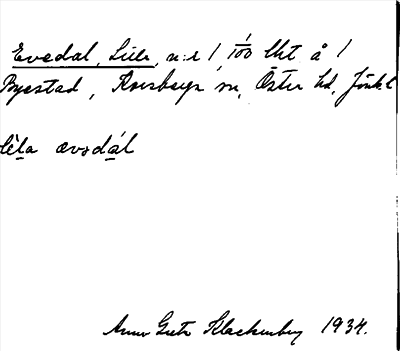 Evedal, Lilla, n:r 1, 1/100 lht å 1
Byestad, Korsberga sn, Öster hd, Jönk. l
lêla ævədál
Anna Greta Klackenberg 1934.